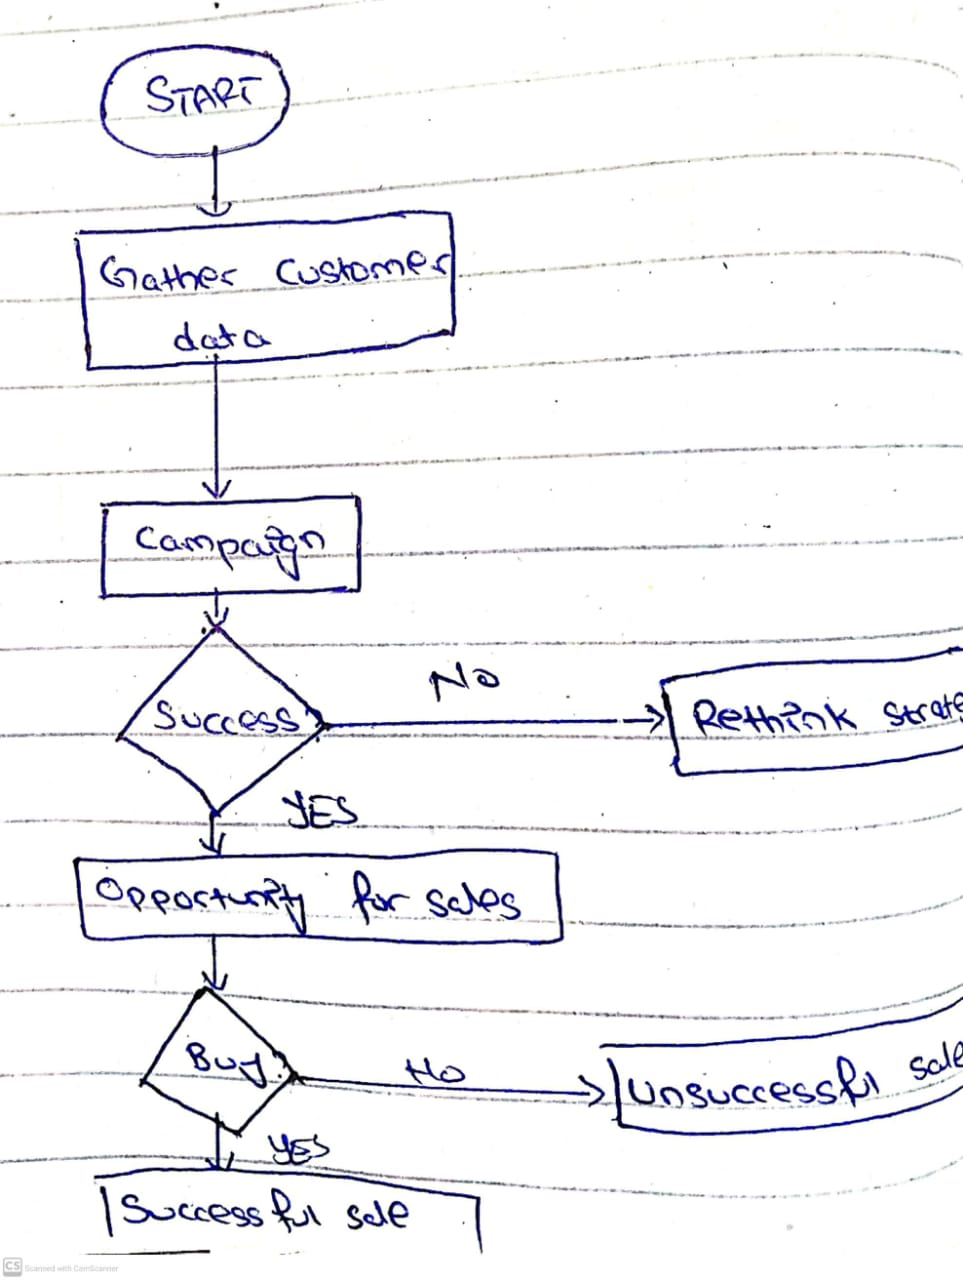 START
Gather Customer
data
Campaign
Success?
NO
Rethink strate
YES
Opportunity for sales
Buy?
No
Unsuccessful sale
YES
Successful sale
CS Scanned with CamScanner